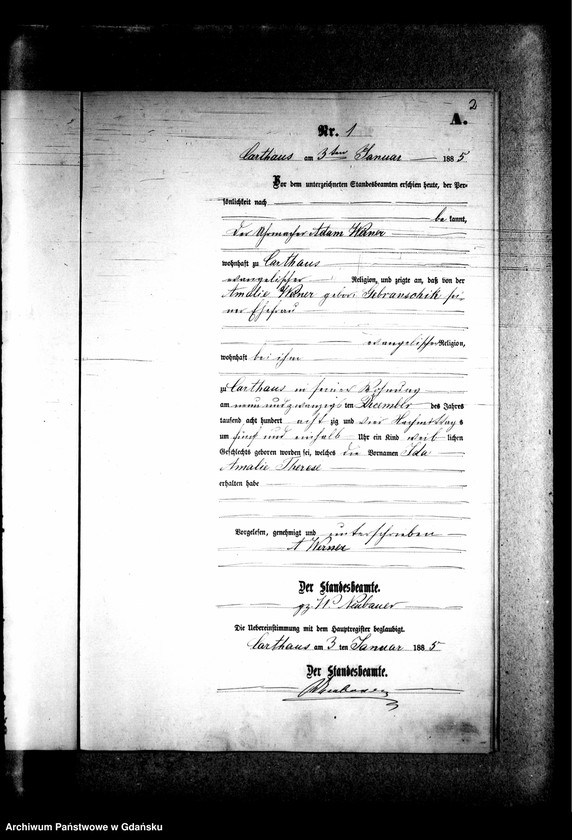 2
A.
Nr. 1
Carthaus am 3ten Januar 1885
Vor dem unterzeichneten Standesbeamten erschien heute, der Per-
sönlichkeit nach
be kannt,
der Uhrmacher Adam Werner
wohnhaft zu Carthaus
evangelischer Religion, und zeigte an, daß von der
Amalie Werner geborene sei-
ner Ehefrau
evangelischer Religion,
wohnhaft bei ihm
zu Carthaus in seiner Wohnung
am neun und zwanzigs ten December des Jahres
tausend acht hundert acht zig und vier Nachmittags
um fünf und einhalb Uhr ein Kind weib lichen
Geschlechts geboren worden sei, welches die Vornamen Ida
Amalie Therese
erhalten habe
Vorgelesen, genehmigt und unterschrieben
A Werner
Der Standesbeamte.
gz. Neubauer
Die Uebereinstimmung mit dem Hauptregister beglaubigt.
Carthaus am 3 ten Januar 1885
Der Standesbeamte.
Neubauer
Archiwum Państwowe w Gdańsku